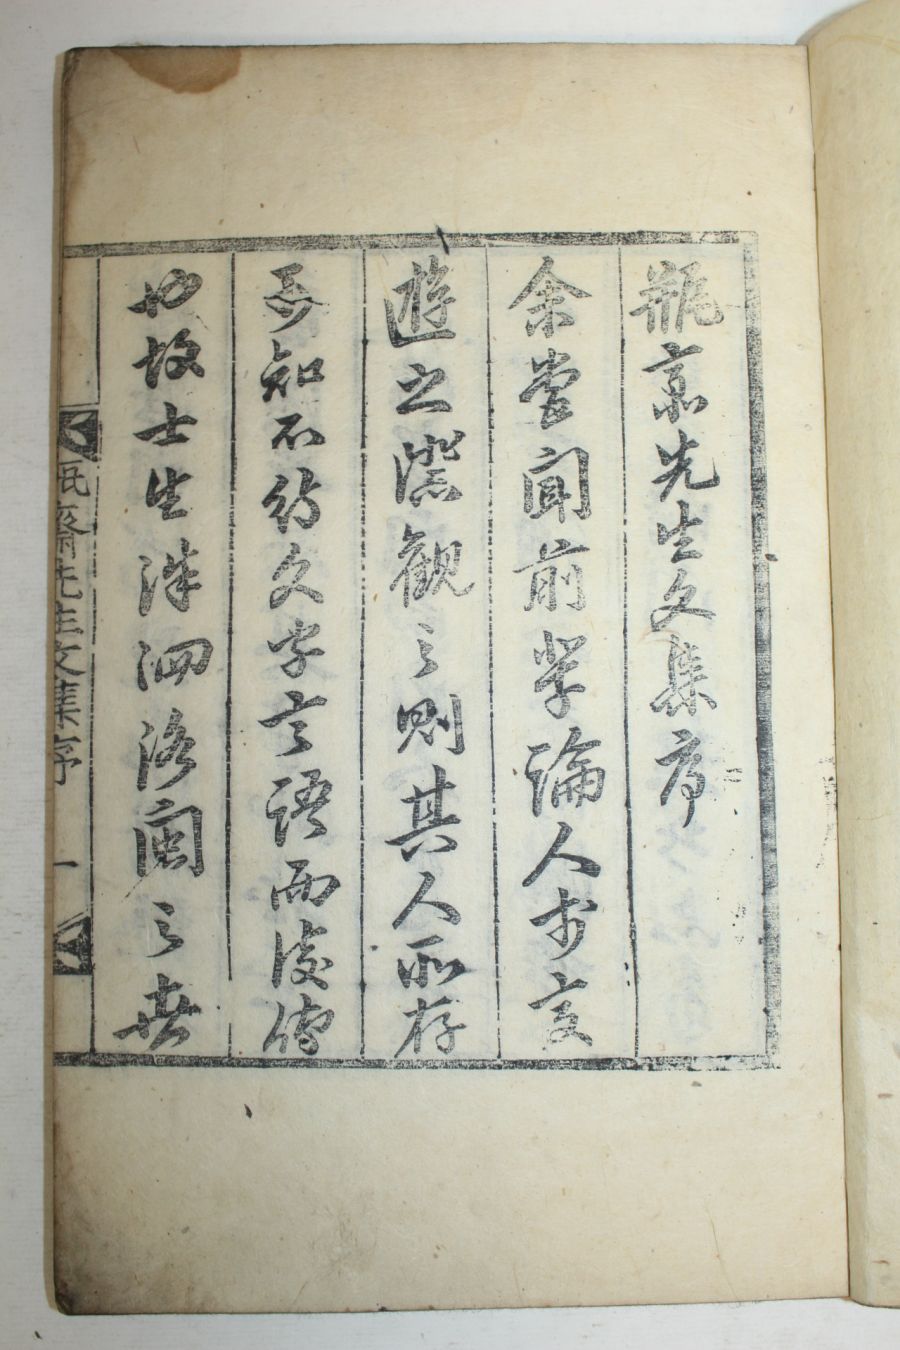 瓶齋先生文集序
余嘗聞前輩論人於交
遊之際觀之則其人所存
可知不待文字言語而後傳
也故士生洙泗洛閩之世
瓶齋先生文集序 一